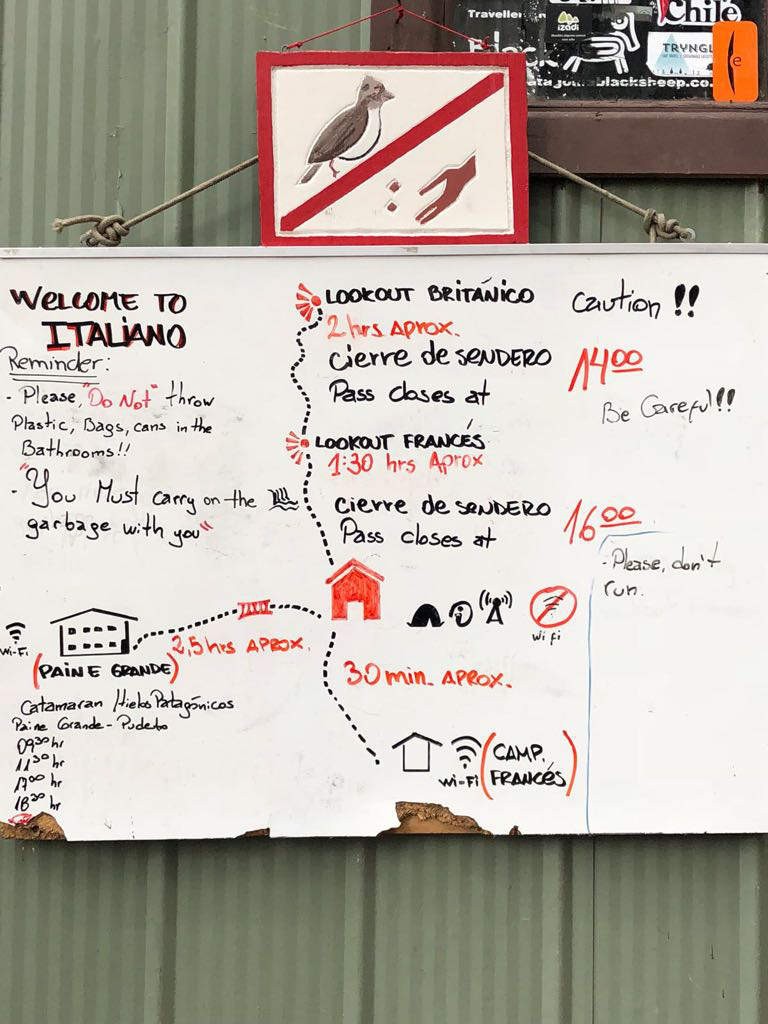 Chile
Traveller
izadi
TRYNGL
e
blacksheep.co
WELCOME TO
ITALIANO
Reminder:
- Please, "Do Not" throw
Plastic, Bags, cans in the
Bathrooms!!
- "You Must carry on the
garbage with you"
LOOKOUT BRITÁNICO
2 hrs APROX.
cierre de SENDERO
Pass closes at
14⁰⁰
Caution !!
Be Careful!!
LOOKOUT FRANCÉS
1:30 hrs Aprox
cierre de SENDERO
Pass closes at
16⁰⁰
- Please, don't
run.
Wi-Fi
(PAINE GRANDE)
2,5 hrs APROX.
i
wifi
30 min. APROX.
Wi-Fi
(CAMP.
FRANCÉS)
Catamaran Hielos Patagónicos
Paine Grande - Pudeto
09³⁰ hr
11³⁰ hr
17⁰⁰ hr
18³⁰ hr